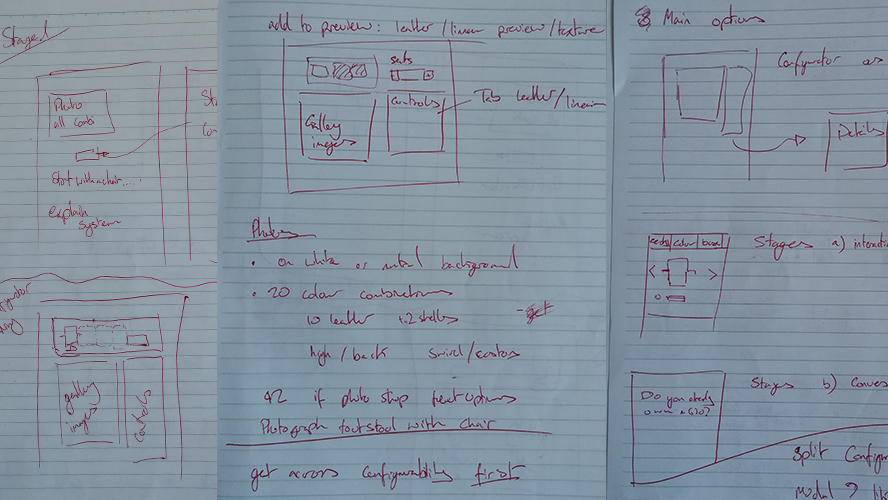 Staged
Photo
all combi
Start with a chair...
explain
system
gallery
images
controls
add to preview: leather / linen preview / texture
seats
controls
Gallery
images
Tab leather/linen
Photos
• on white or neutral background
• 20 colour combinations
10 leather + 2 shells
high / back swivel / castors
42 if photo shop feet options
Photograph footstool with chair
get across configurability first
Main options
Configurator as
Details
colour
base
Stages a)
Do you already
own a 620?
Stages b)
Split